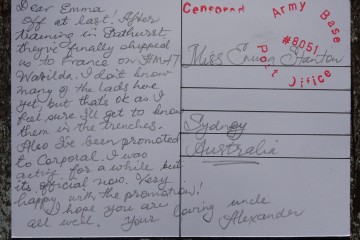 Dear Emma
Off at last! After
training in Bathurst
they've finally shipped
us to France on HMAT
Warilda. I don't know
many of the lads here
yet but thats ok as I
feel sure I'll get to know
them in the trenches.
Also I've been promoted
to Corporal. I was
acting for a while but
its official now. Very
happy with the promotion!
I hope you are
all well. Your loving uncle
Alexander
Censored Army Base
#8051
Post Office
Miss Stanton
Sydney
Australia